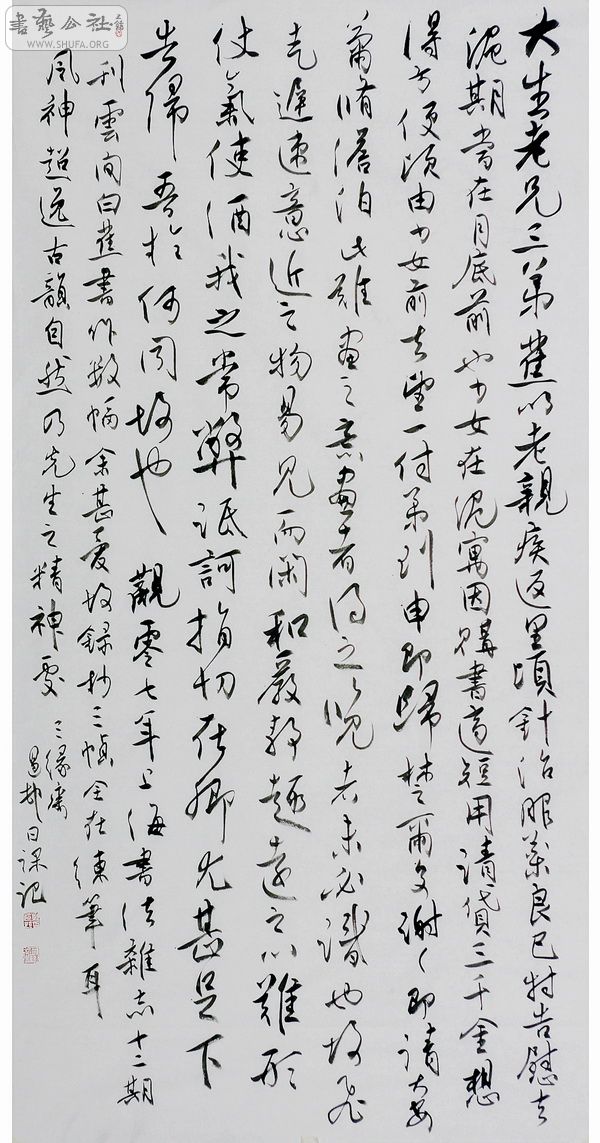 書藝公社
WWW.SHUFA.ORG
大生老兄三八弟蕉以老親疾返里頃針治服藥良已特告慰去
滬期當在月底前也小女在滬寓因購書適短用請貸三千金想
得於便頃由小女前去望一付弟到申即歸楚爾多謝々即請大安
蕭脩澹泊此難畫之意畫者得之覽者未必識也故飛
走遲速意近之物易見而閑和嚴靜趣遠之心難形
仗氣使酒我之常弊詆訶指切在卿尤甚足下
告歸吾於何聞故也 觀零七年上海書法雜志十二期
刊雲間白蕉書作數幅余甚愛故錄抄三幀全在練筆耳
風神超逸古韻自然乃先生之精神處 三緣齋
日課記